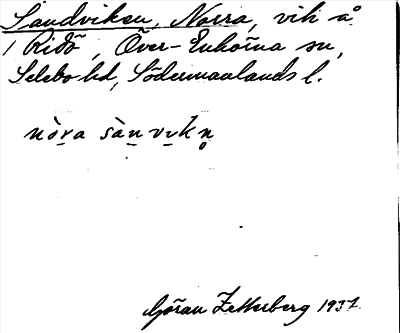 Sandviken, Norra, vik å
/ Ridö, Över-Enhörna sn,
Selebo hd, Södermanlands l.
nòra sàn vikn̥
Göran Zetterberg 1937.